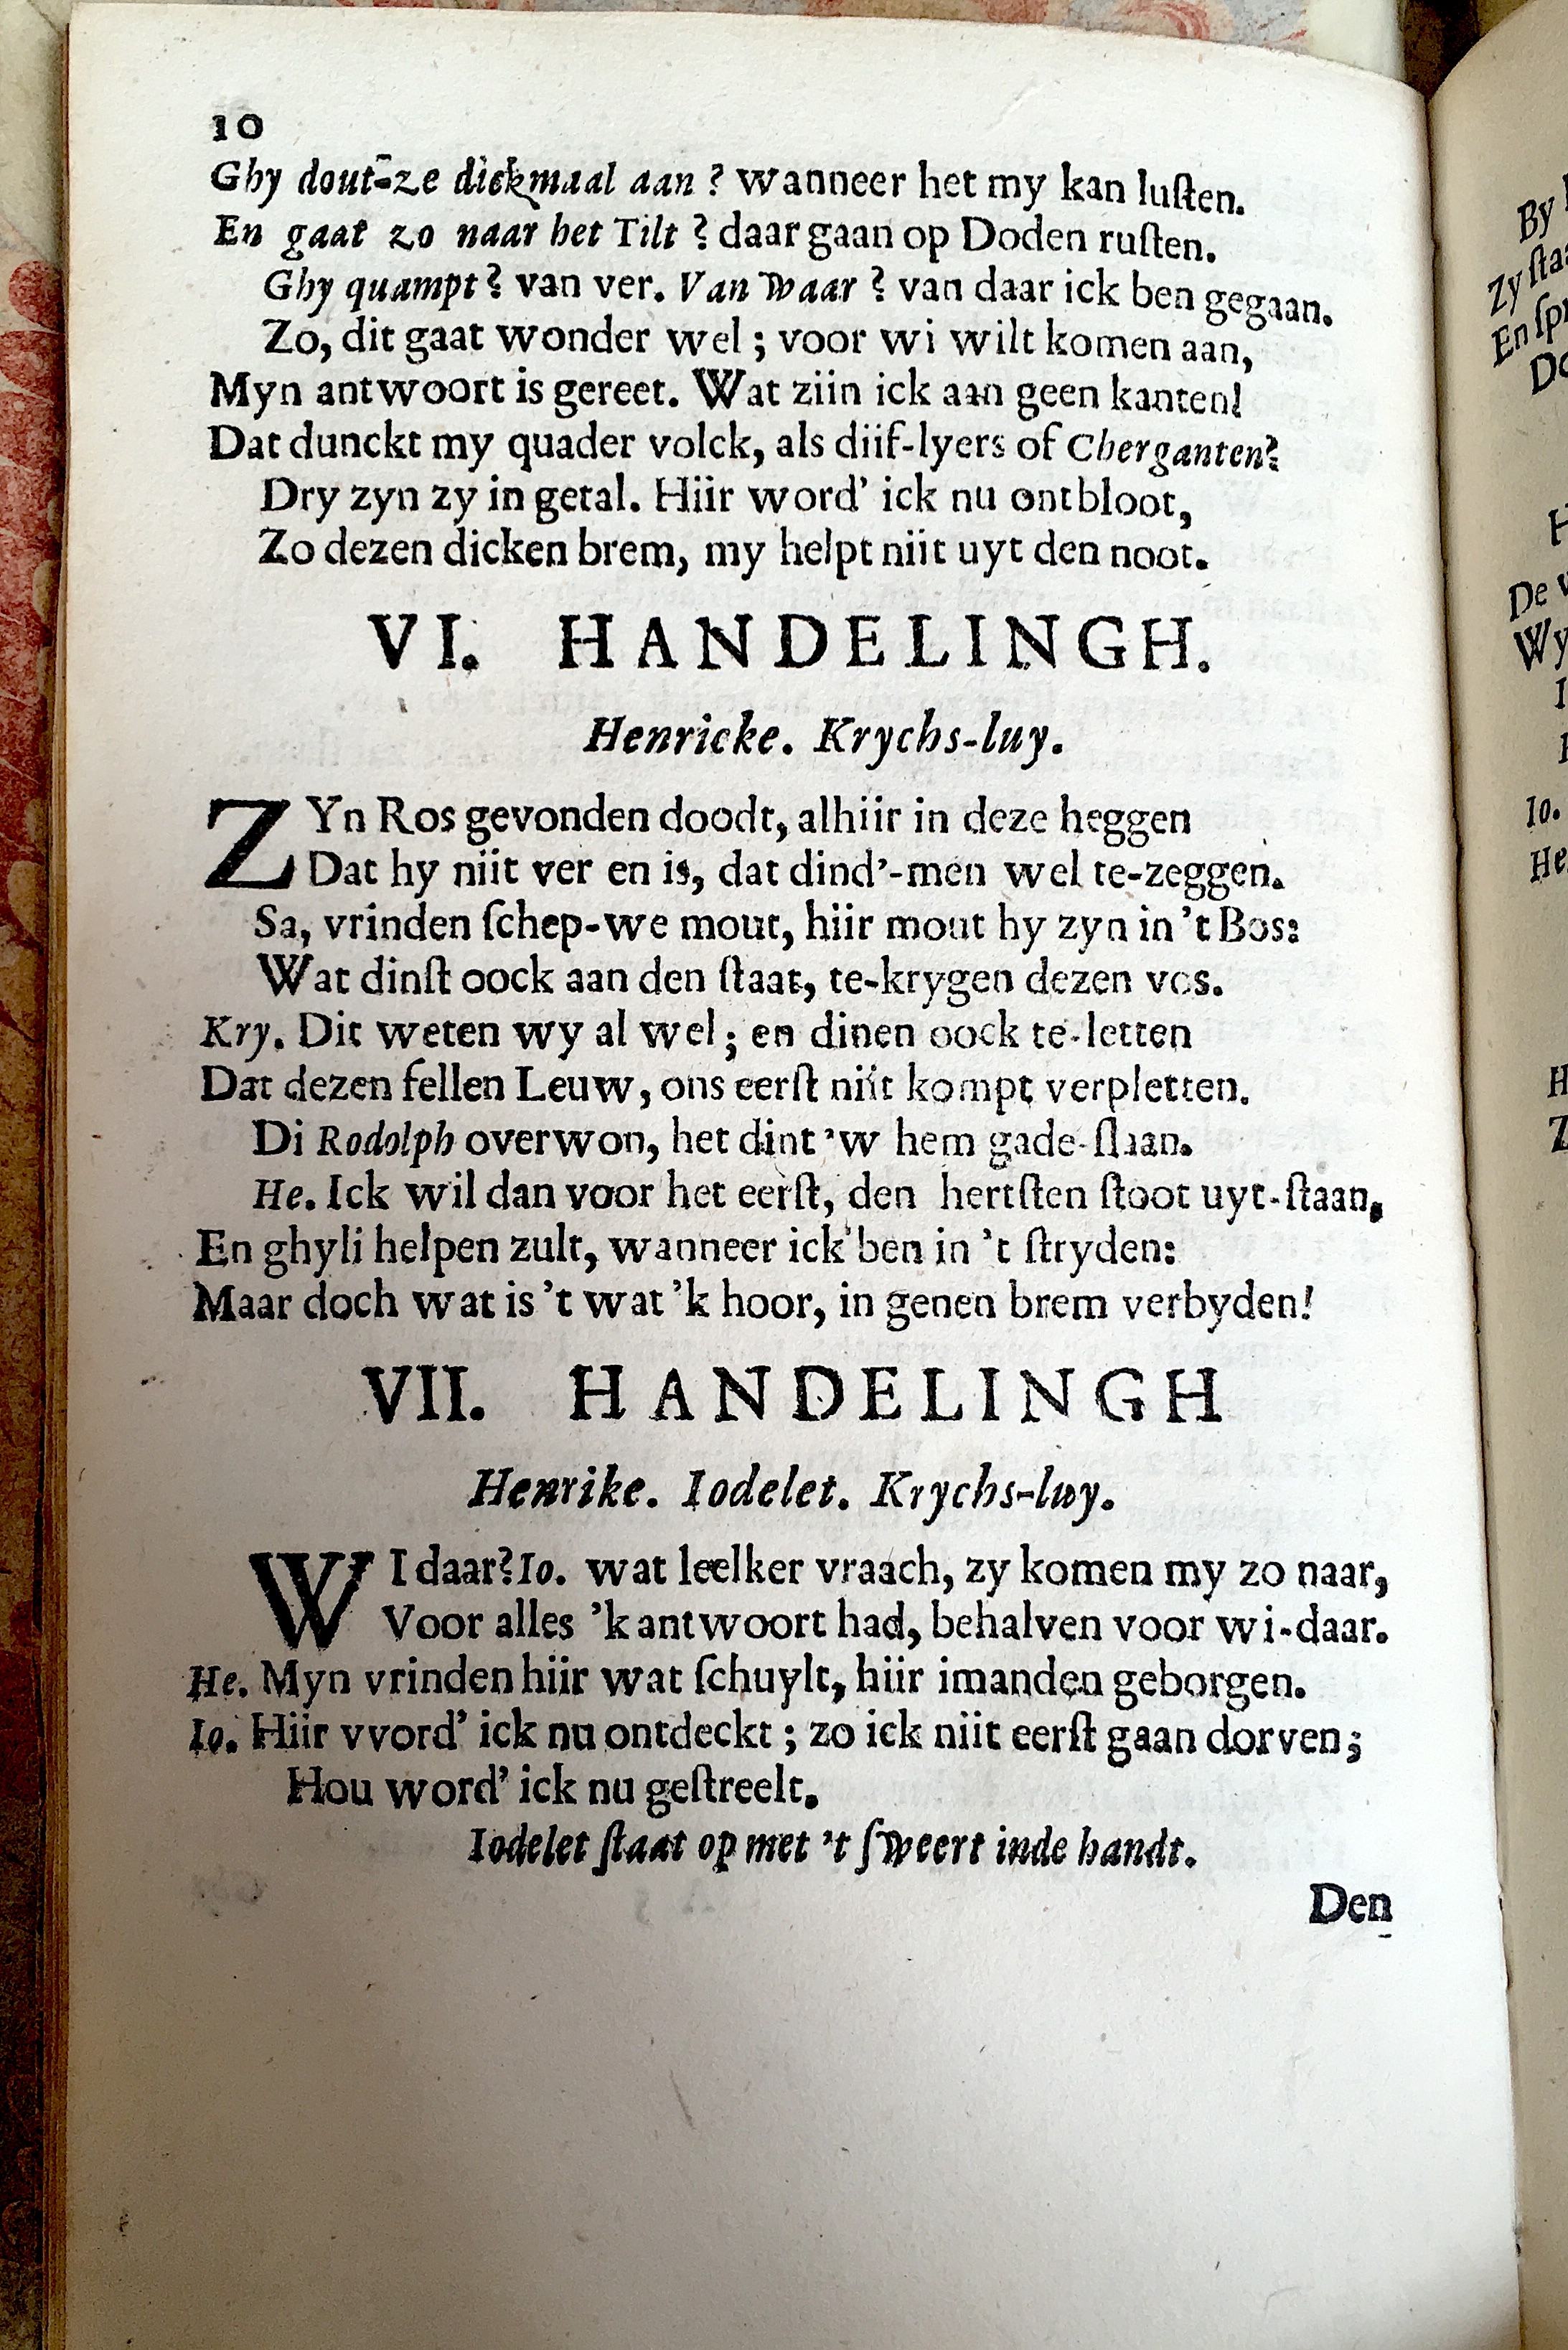 10
Ghy dout-ze dickmaal aan ? wanneer het my kan luſten.
En gaat zo naar het Tilt ? daar gaan op Doden ruſten.
Ghy quampt ? van ver. Van waar ? van daar ick ben gegaan.
Zo, dit gaat wonder wel ; voor wi wilt komen aan,
Myn antwoort is gereet. Wat ziin ick aan geen kanten!
Dat dunckt my quader volck, als diif-lyers of Cherganten?
Dry zyn zy in getal. Hiir word' ick nu ontbloot,
Zo dezen dicken brem, my helpt niit uyt den noot.
VI. HANDELINGH.
Henricke. Krychs-luy.
ZYn Ros gevonden doodt, alhiir in deze heggen
Dat hy niit ver en is, dat dind'-men wel te-zeggen.
Sa, vrinden ſchep-we mout, hiir mout hy zyn in 't Bos:
Wat dinſt oock aan den ſtaat, te-krygen dezen vos.
Kry. Dit weten wy al wel ; en dinen oock te-letten
Dat dezen fellen Leuw, ons eerſt niit kompt verpletten.
Di Rodolph overwon, het dint 'w hem gade-ſlaan.
He. Ick wil dan voor het eerſt, den hertſten ſtoot uyt-ſtaan,
En ghyli helpen zult, wanneer ick ben in 't ſtryden:
Maar doch wat is 't wat 'k hoor, in genen brem verbyden!
VII. HANDELINGH
Henrike. Iodelet. Krychs-luy.
WI daar? Io. wat leelker vraach, zy komen my zo naar,
Voor alles 'k antwoort had, behalven voor wi-daar.
He. Myn vrinden hiir wat ſchuylt, hiir imanden geborgen.
Io. Hiir vvord' ick nu ontdeckt ; zo ick niit eerſt gaan dorven ;
Hou word' ick nu geſtreelt.
Iodelet ſtaat op met 't ſweert inde handt.
Den
By
Zy
De
Wy
Io.
He.